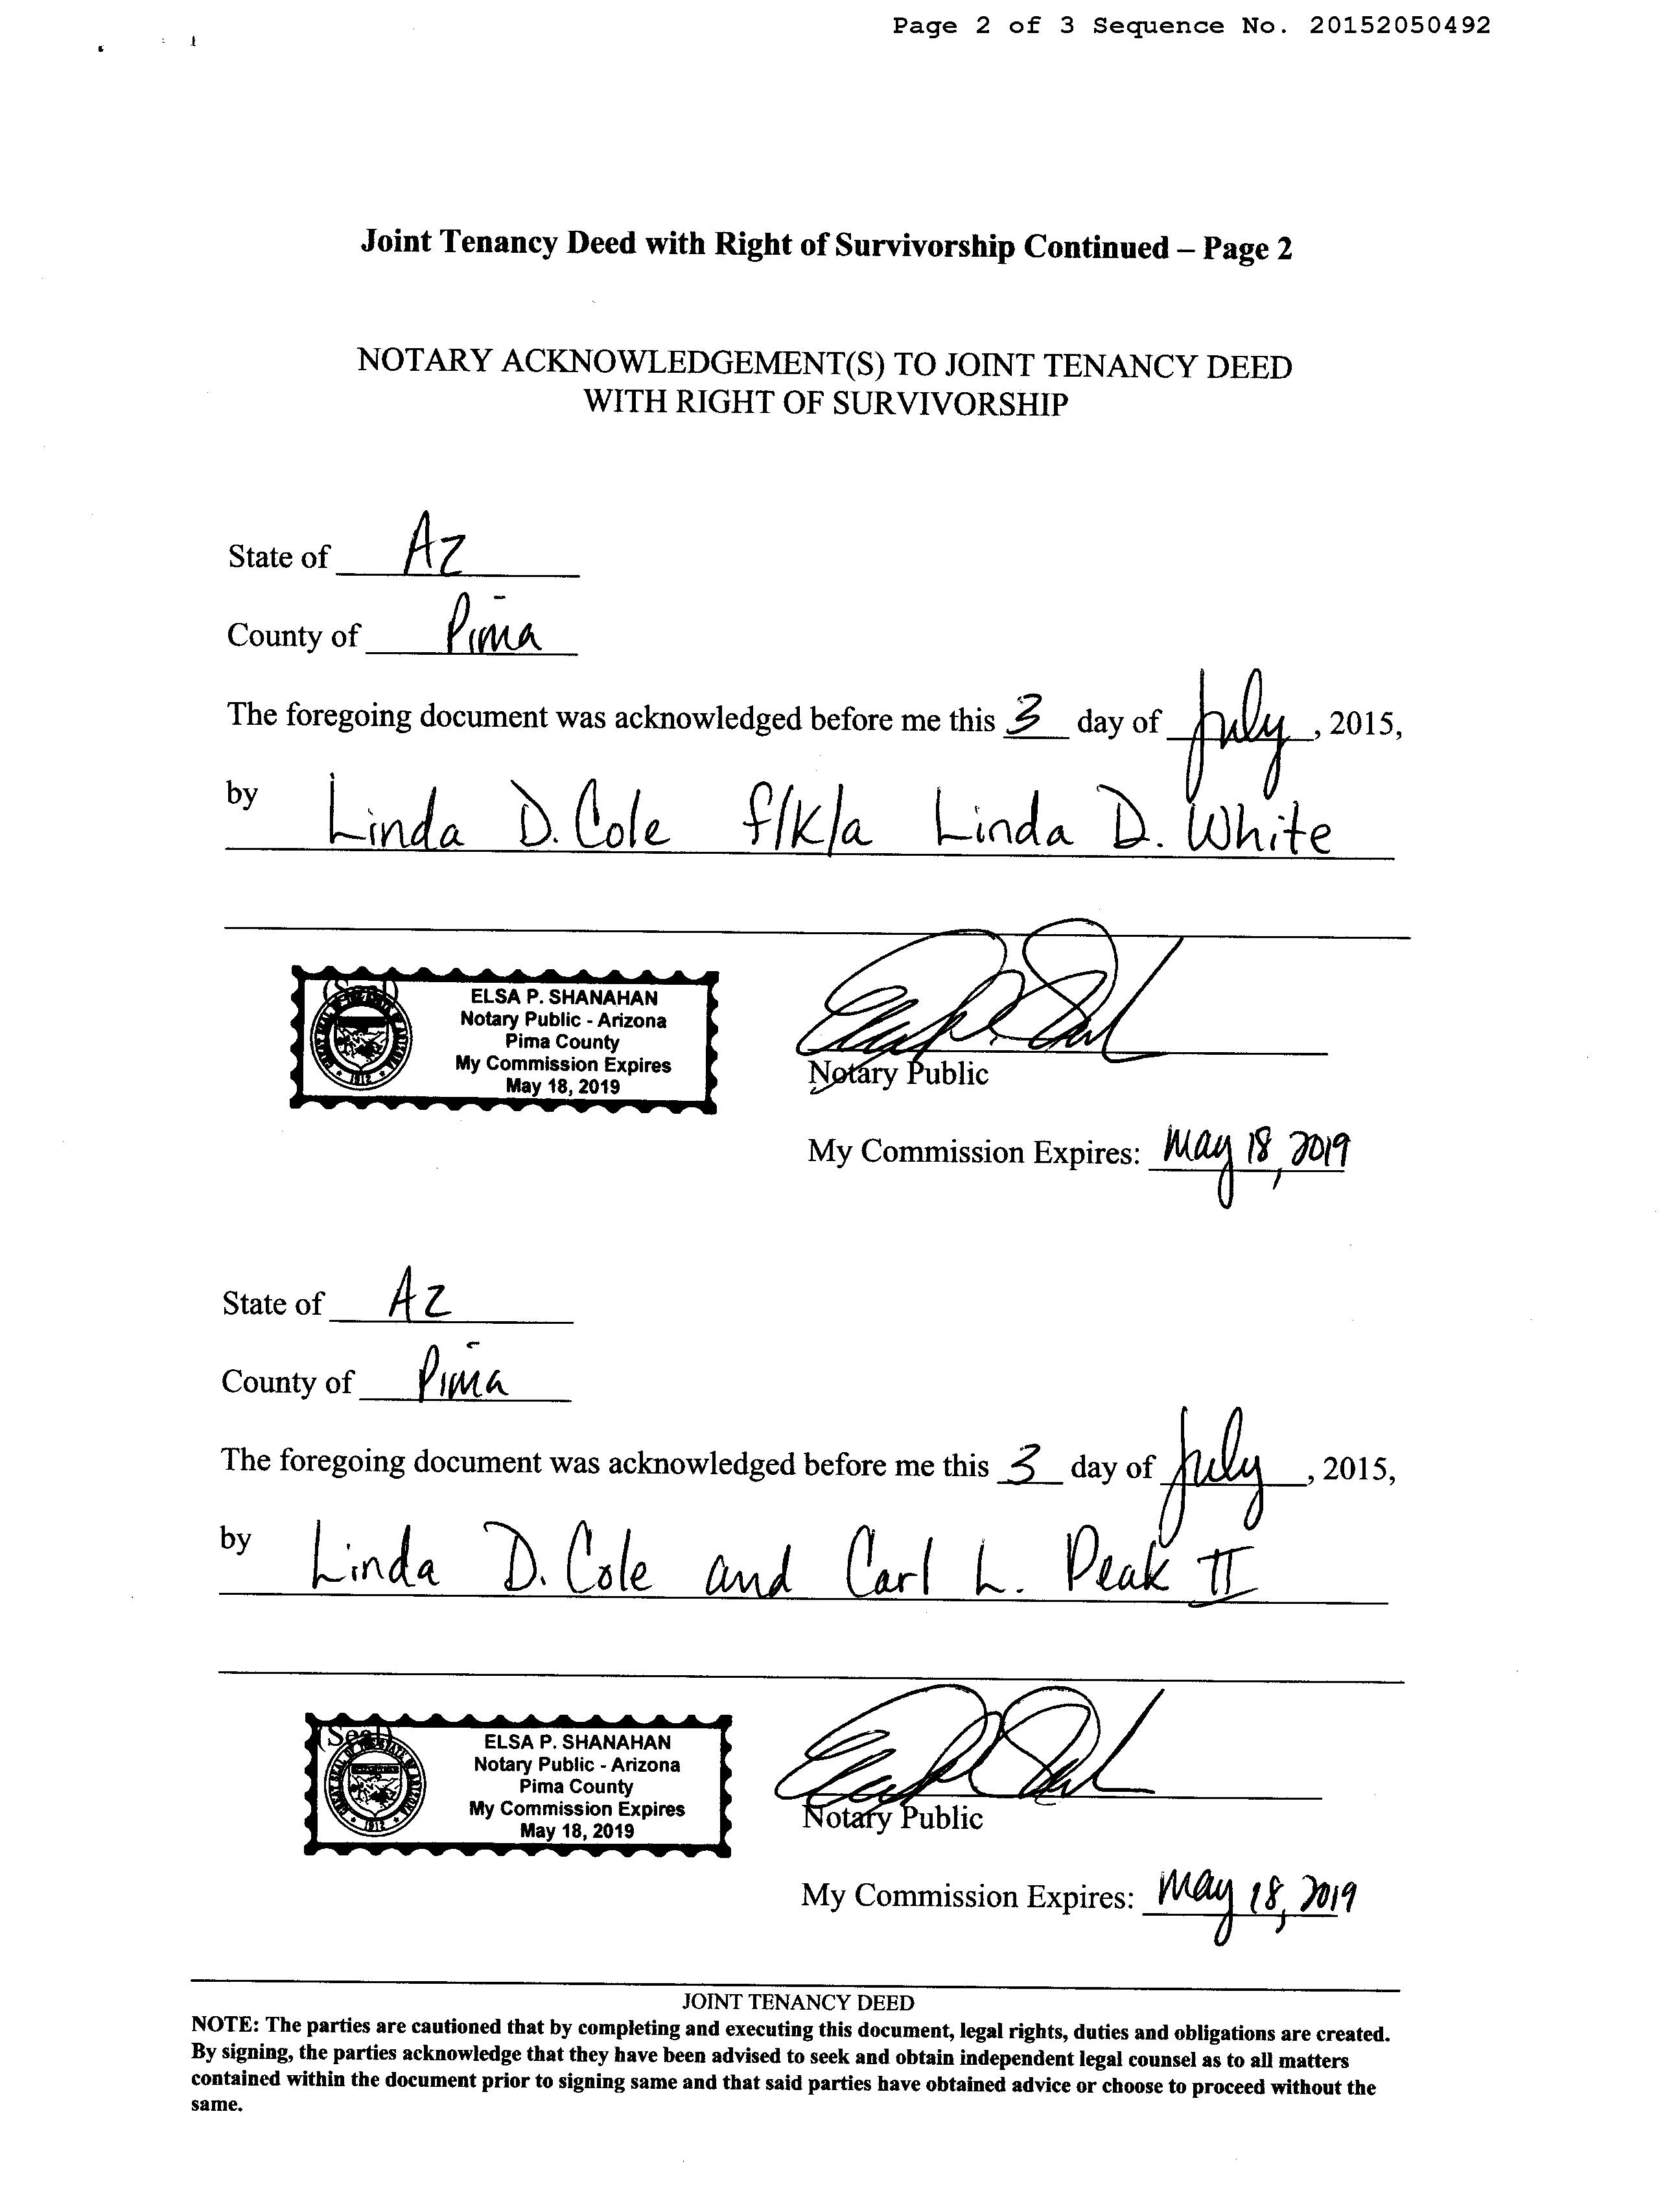 Page 2 of 3 Sequence No. 20152050492
Joint Tenancy Deed with Right of Survivorship Continued – Page 2
NOTARY ACKNOWLEDGEMENT(S) TO JOINT TENANCY DEED
WITH RIGHT OF SURVIVORSHIP
State of AZ
County of Pima
The foregoing document was acknowledged before me this 3 day of July, 2015,
by Linda D. Cole f/k/a Linda D. White
(Seal)
ELSA P. SHANAHAN
Notary Public - Arizona
Pima County
My Commission Expires
May 18, 2019
Notary Public
My Commission Expires: May 18, 2019
State of AZ
County of Pima
The foregoing document was acknowledged before me this 3 day of July, 2015,
by Linda D. Cole and Carl L. Peak II
(Seal)
ELSA P. SHANAHAN
Notary Public - Arizona
Pima County
My Commission Expires
May 18, 2019
Notary Public
My Commission Expires: May 18, 2019
JOINT TENANCY DEED
NOTE: The parties are cautioned that by completing and executing this document, legal rights, duties and obligations are created.
By signing, the parties acknowledge that they have been advised to seek and obtain independent legal counsel as to all matters
contained within the document prior to signing same and that said parties have obtained advice or choose to proceed without the
same.